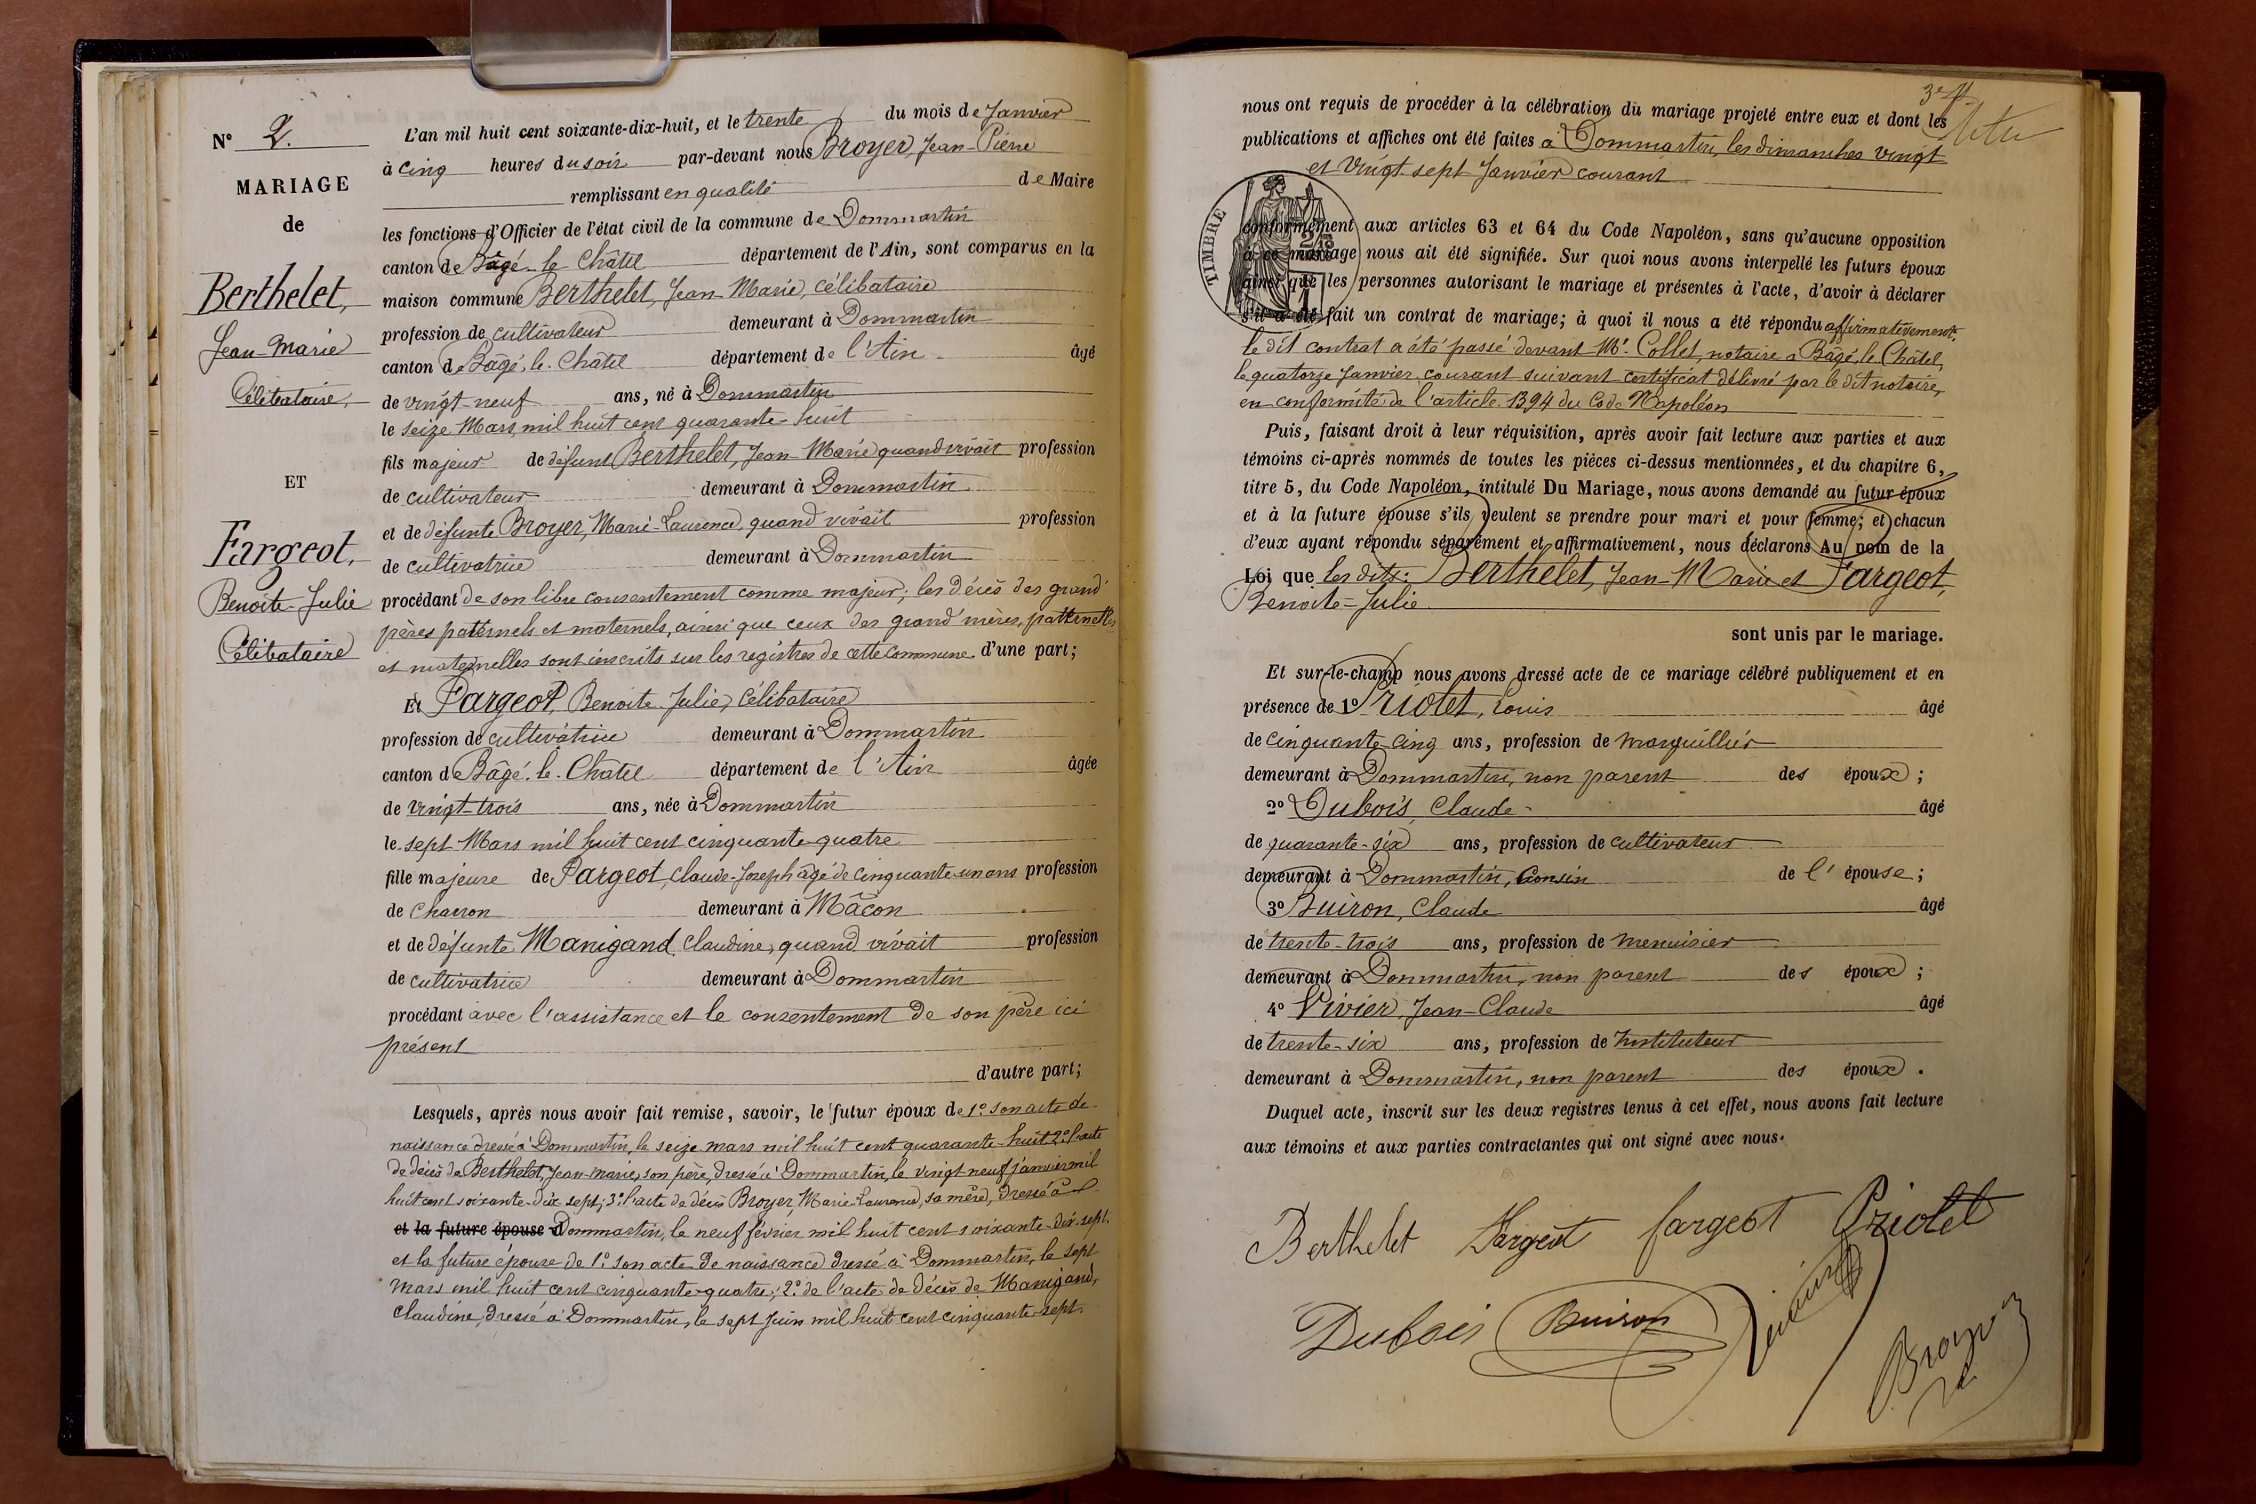 N° 2.
MARIAGE
de
Berthelet,
Jean-Marie
Célibataire,
ET
Fargeot,
Benoite-Julie
Célibataire
L'an mil huit cent soixante-dix-huit, et le trente du mois de Janvier
à cinq heures du soir par-devant nous Broyer, Jean-Pierre
remplissant en qualité de Maire
les fonctions d'Officier de l'état civil de la commune de Dommartin
canton de Bâgé-le-Châtel département de l'Ain, sont comparus en la
maison commune Berthelet, Jean-Marie, célibataire
profession de cultivateur demeurant à Dommartin
canton de Bâgé-le-Châtel département de l'Ain âgé
de vingt-neuf ans, né à Dommartin
le seize Mars mil huit cent quarante-huit
fils majeur de défunt Berthelet, Jean-Marie quand vivait profession
de cultivateur demeurant à Dommartin
et de défunte Broyer, Marie-Laurence, quand vivait profession
de cultivatrice demeurant à Dommartin
procédant de son libre consentement comme majeur; les décès des grand'
pères paternels et maternels, ainsi que ceux des grand'mères, paternelles
et maternelles sont inscrits sur les registres de cette commune d'une part;
Et Fargeot, Benoite-Julie, célibataire
profession de cultivatrice demeurant à Dommartin
canton de Bâgé-le-Châtel département de l'Ain âgée
de vingt-trois ans, née à Dommartin
le sept Mars mil huit cent cinquante-quatre
fille majeure de Fargeot, Claude-Joseph âgé de cinquante-un ans profession
de charron demeurant à Mâcon
et de défunte Manigand Claudine, quand vivait profession
de cultivatrice demeurant à Dommartin
procédant avec l'assistance et le consentement de son père ici
présent
d'autre part;
Lesquels, après nous avoir fait remise, savoir, le futur époux de 1° son acte de
naissance dressé à Dommartin, le seize mars mil huit cent quarante-huit 2° l'acte
de décès de Berthelet, Jean-Marie, son père, dressé à Dommartin, le vingt neuf janvier mil
huit cent soixante-dix sept; 3° l'acte de décès Broyer, Marie-Laurence, sa mère, dressé à
et la future épouse d Dommartin, le neuf février mil huit cent soixante-dix-sept.
et la future épouse de 1° son acte de naissance dressé à Dommartin, le sept
mars mil huit cent cinquante-quatre; 2° de l'acte de décès de Manigand,
Claudine, dressé à Dommartin, le sept Juin mil huit cent cinquante-sept.
nous ont requis de procéder à la célébration du mariage projeté entre eux et dont les
publications et affiches ont été faites à Dommartin, les dimanches vingt
et vingt sept Janvier courant
TIMBRE
conformément aux articles 63 et 64 du Code Napoléon, sans qu'aucune opposition
à ce mariage nous ait été signifiée. Sur quoi nous avons interpellé les futurs époux
ainsi que les personnes autorisant le mariage et présentes à l'acte, d'avoir à déclarer
s'il a été fait un contrat de mariage; à quoi il nous a été répondu affirmativement.
le dit contrat a été passé devant Me. Collet, notaire à Bâgé-le-Châtel,
le quatorze Janvier courant suivant certificat délivré par le dit notaire,
en conformité de l'article 1394 du Code Napoléon
Puis, faisant droit à leur réquisition, après avoir fait lecture aux parties et aux
témoins ci-après nommés de toutes les pièces ci-dessus mentionnées, et du chapitre 6,
titre 5, du Code Napoléon, intitulé Du Mariage, nous avons demandé au futur époux
et à la future épouse s'ils veulent se prendre pour mari et pour femme; et chacun
d'eux ayant répondu séparément et affirmativement, nous déclarons Au nom de la
Loi que les dits: Berthelet, Jean-Marie et Fargeot,
Benoite-Julie
sont unis par le mariage.
Et sur-le-champ nous avons dressé acte de ce mariage célébré publiquement et en
présence de 1° Priolet, Louis âgé
de cinquante-cinq ans, profession de marguillier
demeurant à Dommartin, non parent des époux;
2° Dubois, Claude âgé
de quarante-six ans, profession de cultivateur
demeurant à Dommartin, cousin de l'épouse;
3° Buiron, Claude âgé
de trente-trois ans, profession de menuisier
demeurant à Dommartin, non parent des époux;
4° Vivier, Jean-Claude âgé
de trente-six ans, profession de Instituteur
demeurant à Dommartin, non parent des époux.
Duquel acte, inscrit sur les deux registres tenus à cet effet, nous avons fait lecture
aux témoins et aux parties contractantes qui ont signé avec nous.
Berthelet Fargeot fargeot Priolet
Dubois Buiron Vivier Broyer